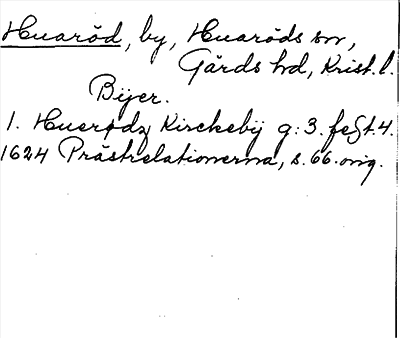 Huaröd, by, Huaröds sn,
Gärds hd, Krist. l.
Bijer.
1. Huerødz Kirckebÿ g: 3. feSt. 4.
1624 Prästrelationerna, s. 66. orig.